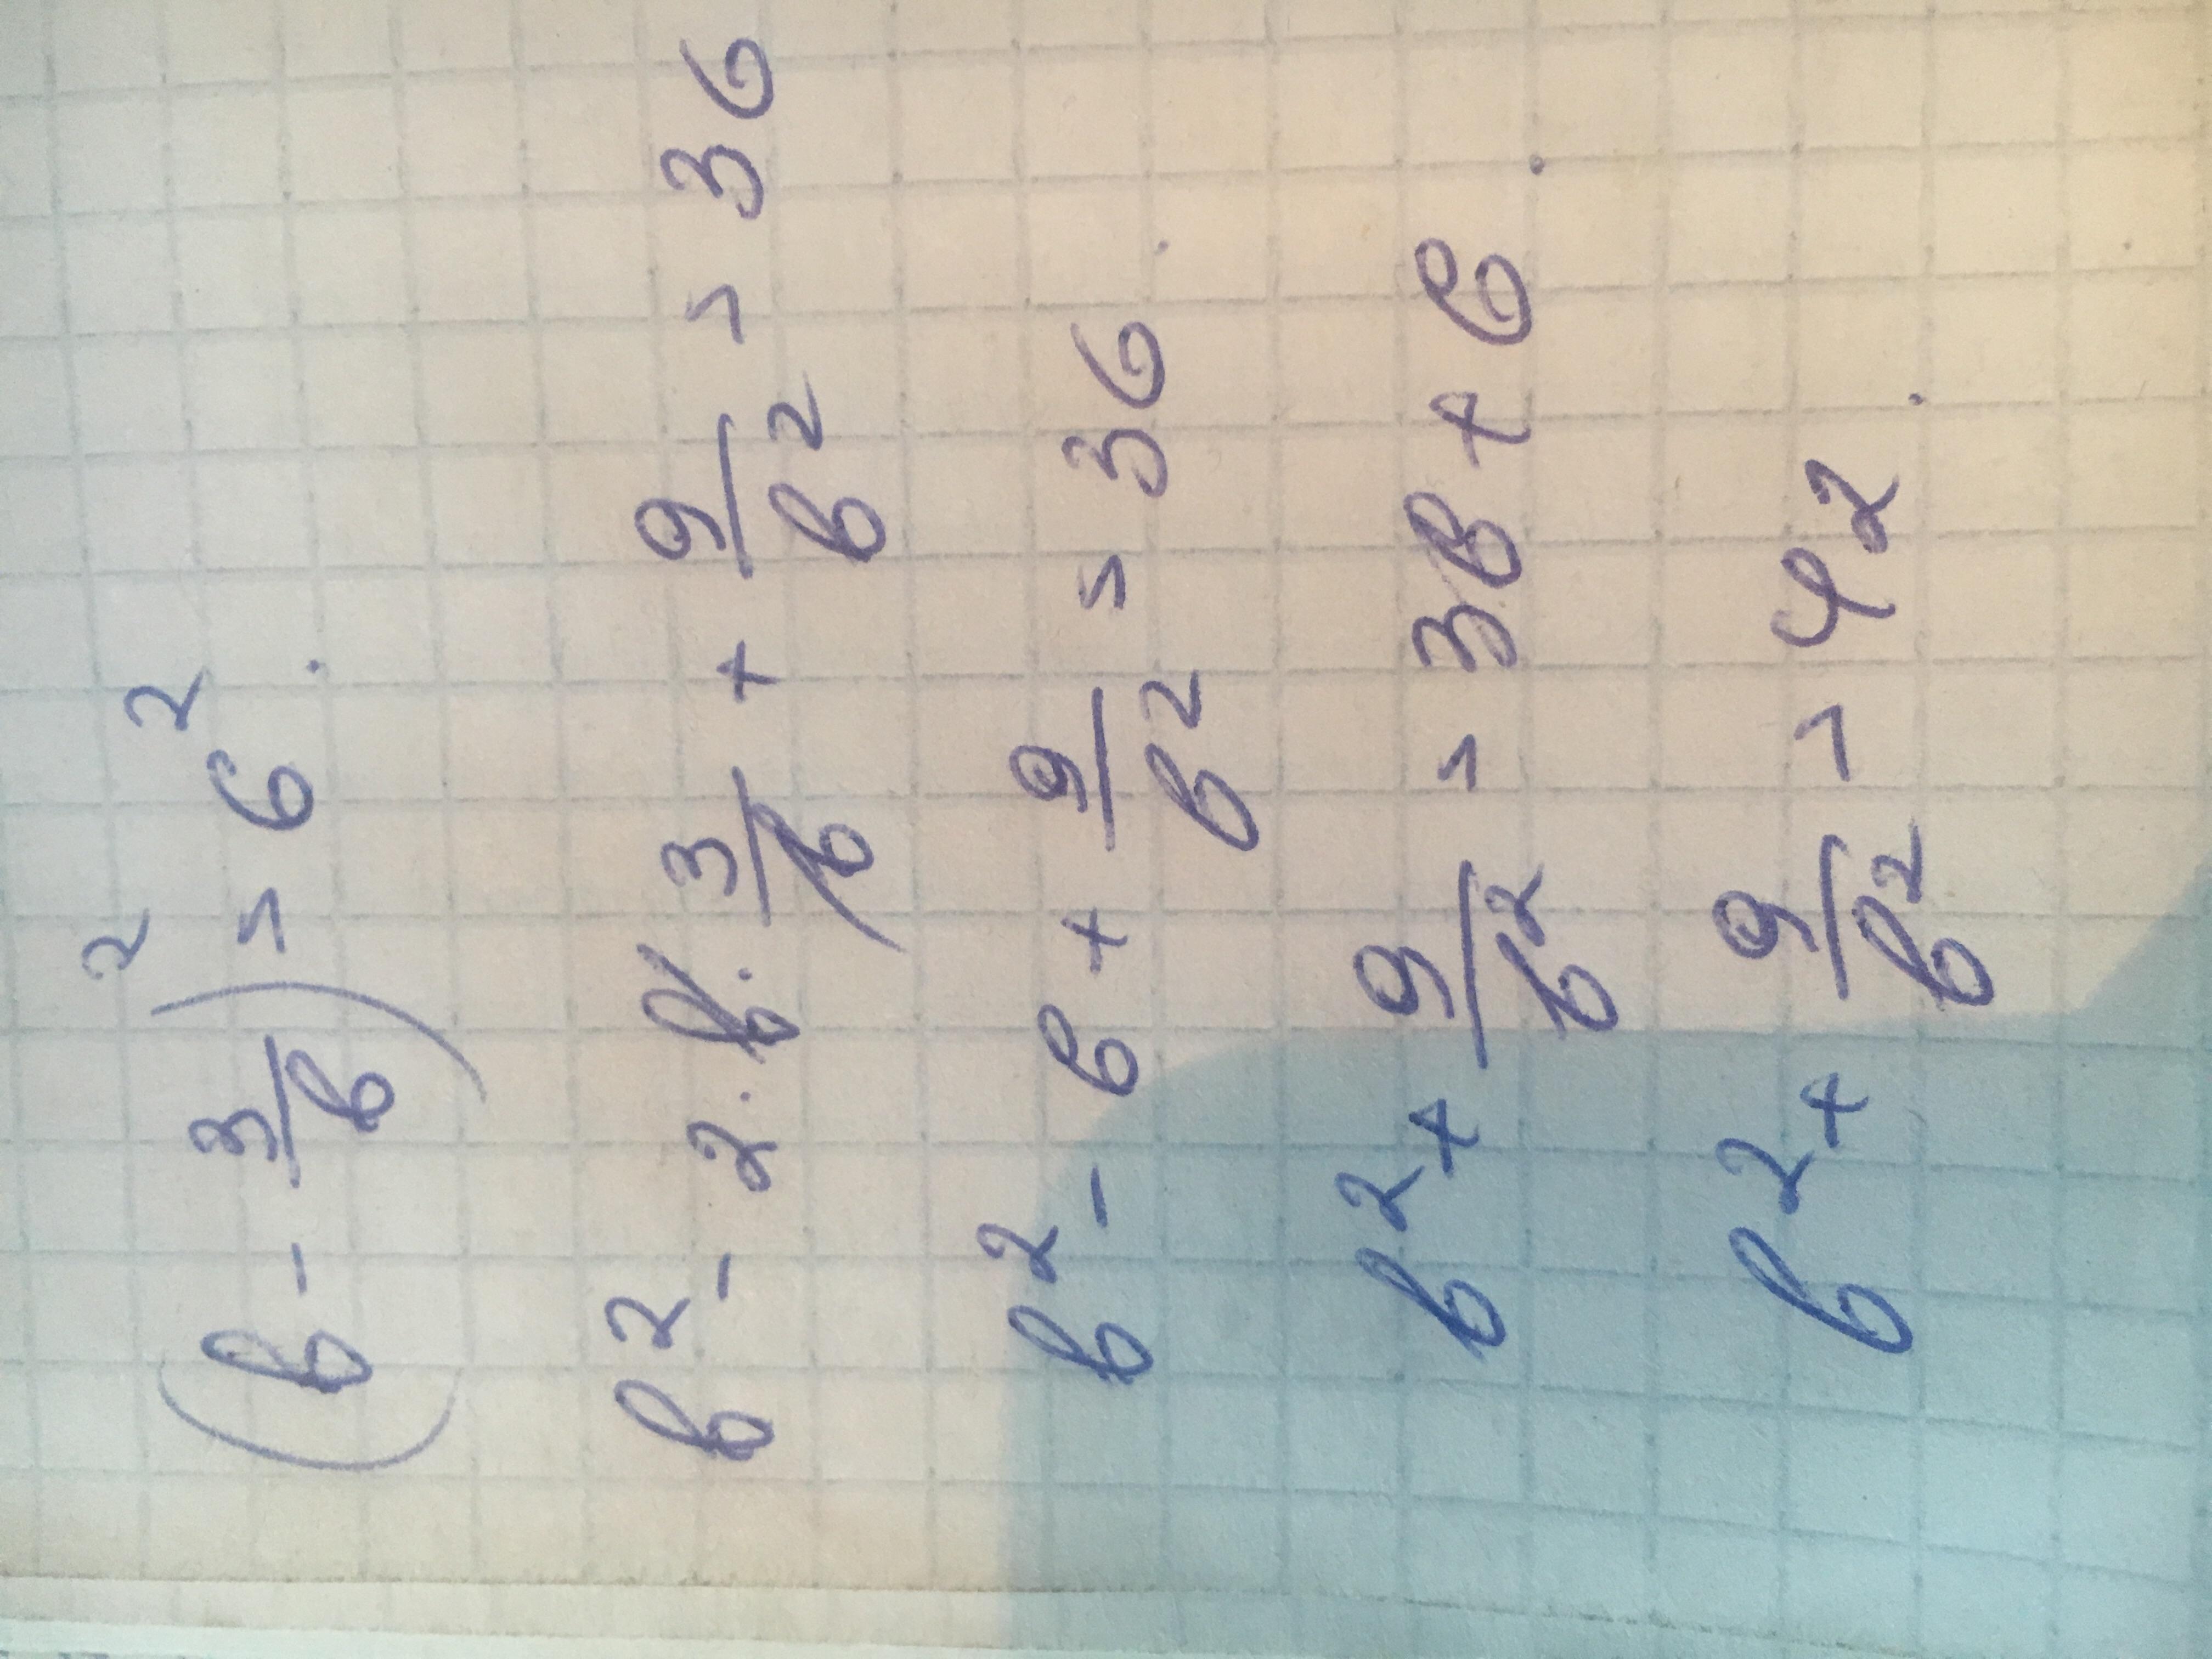 (b - 3/b)² = 6².
b² - 2 · b · 3/b + 9/b² = 36
b² - 6 + 9/b² = 36.
b² + 9/b² = 36 + 6.
b² + 9/b² = 42.